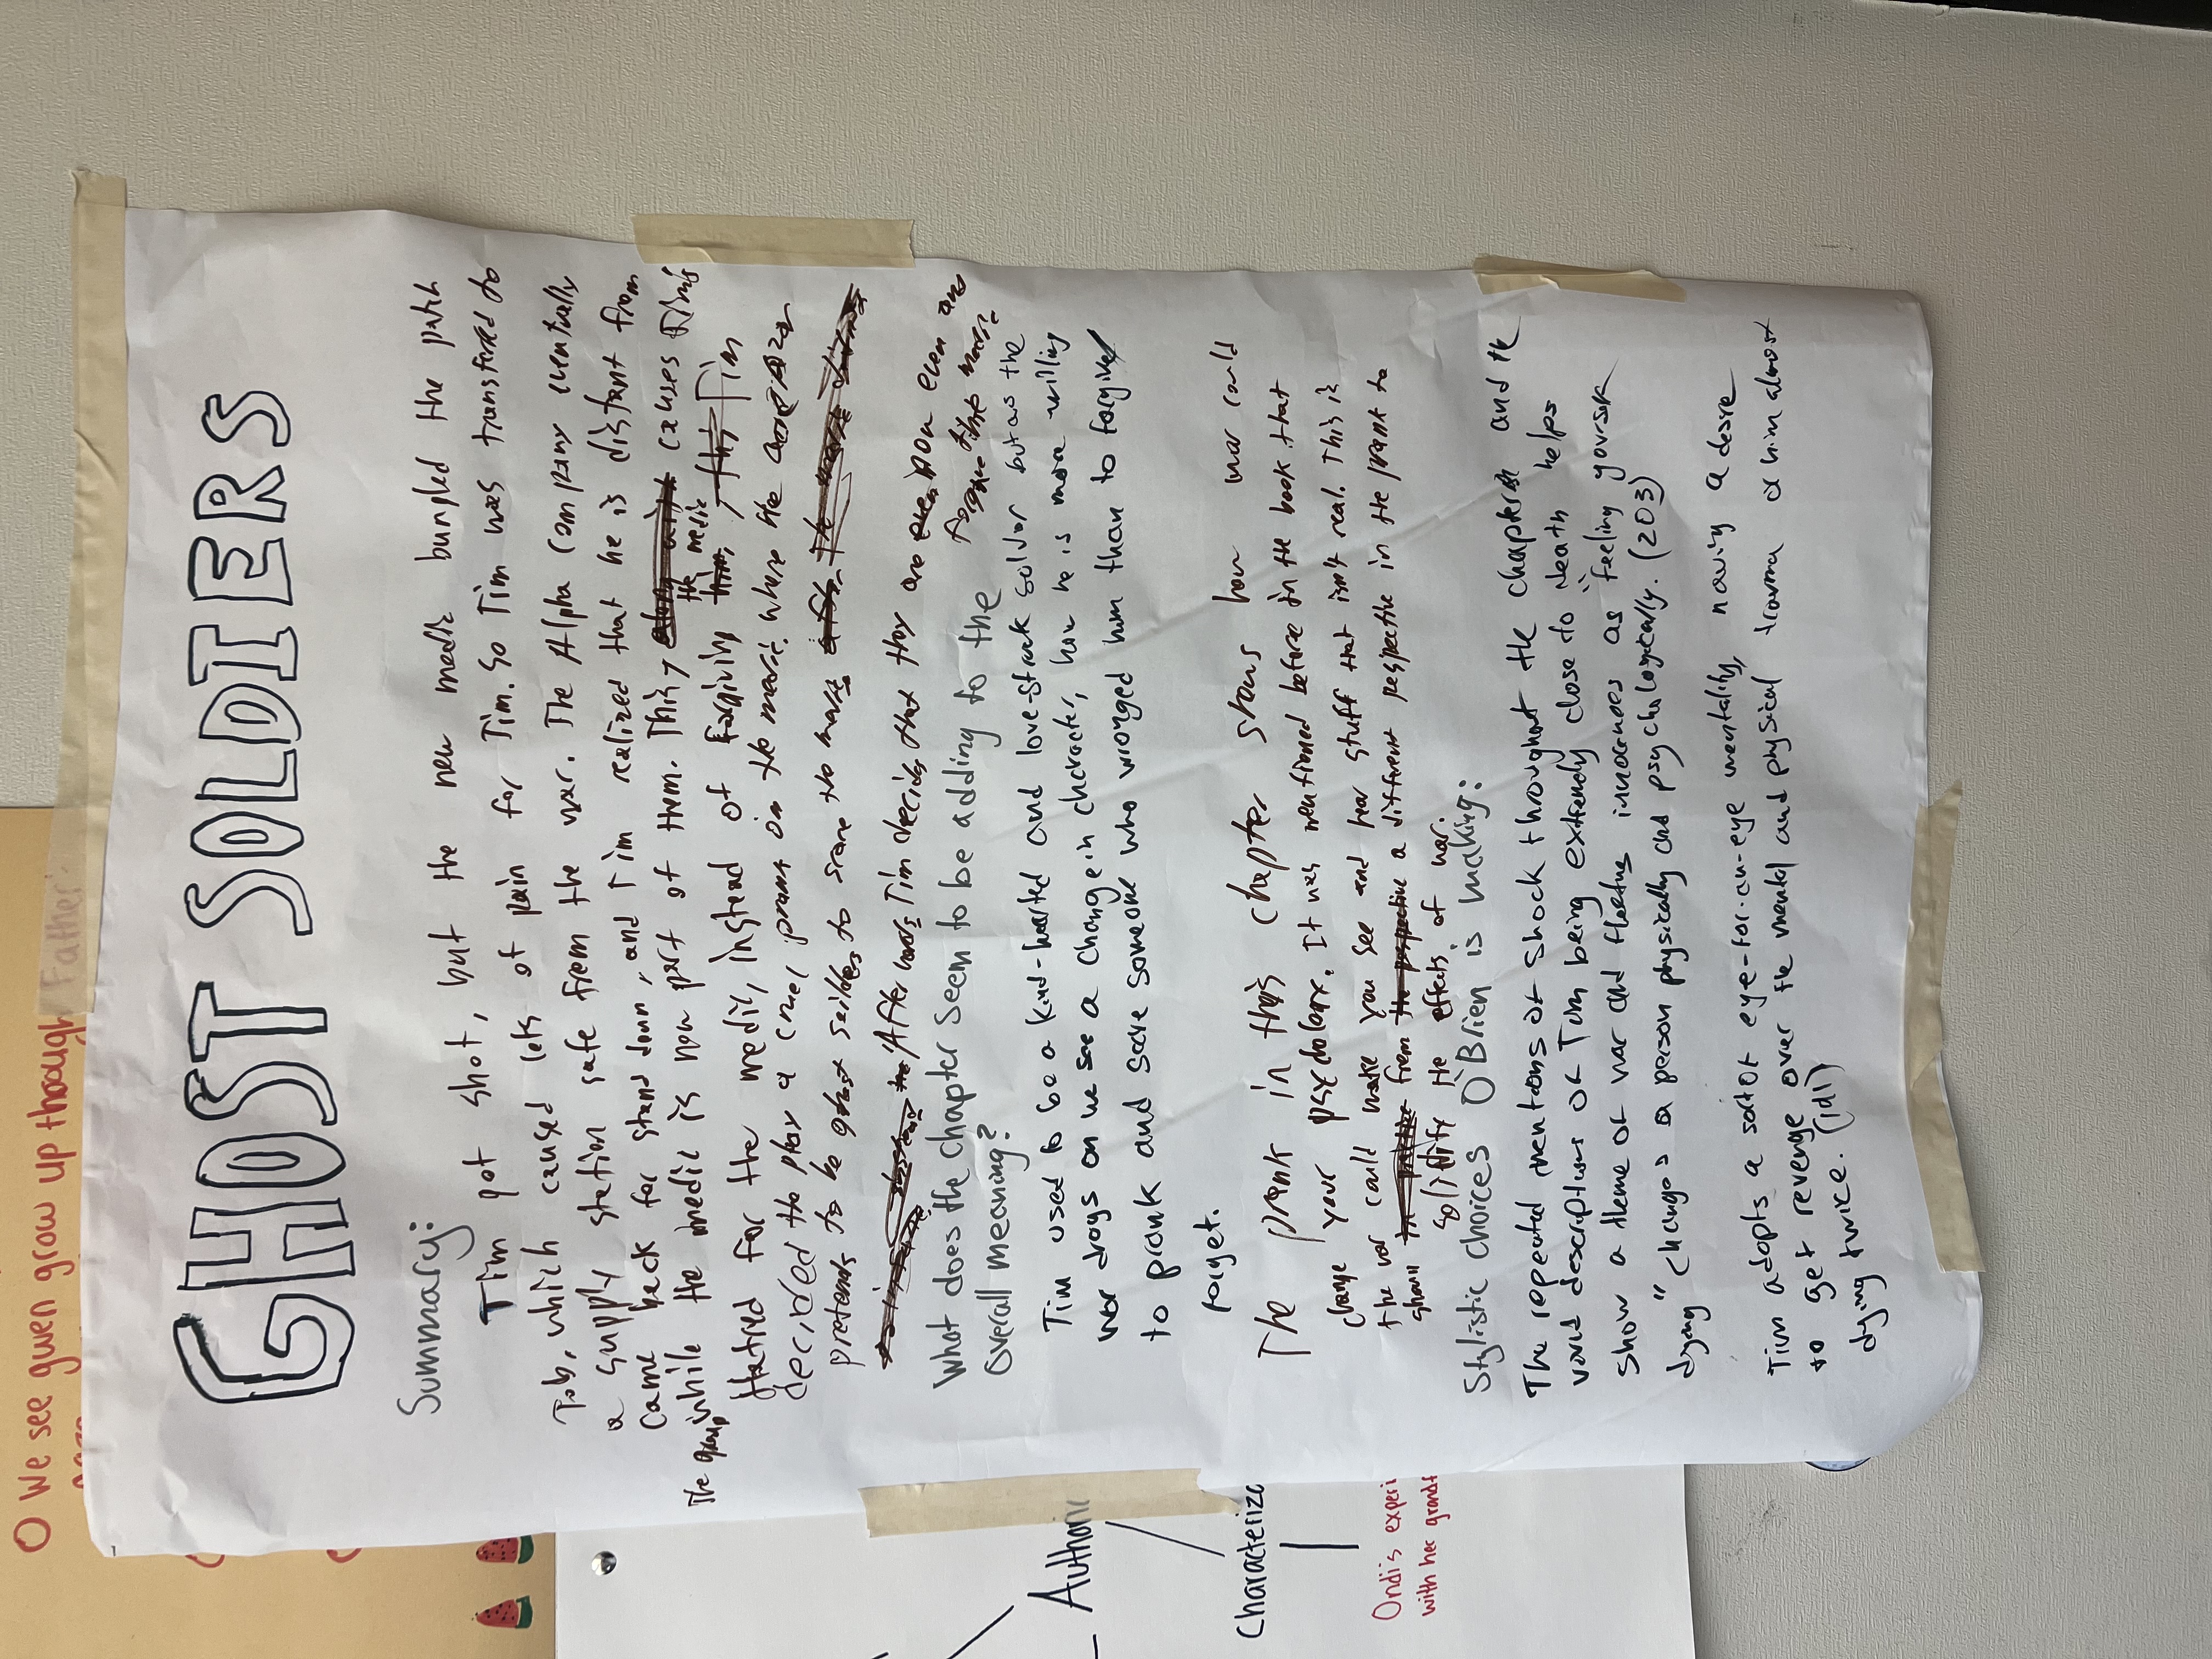 O We see gwen grow up through
Father:
GHOST SOLDIERS
Summary:
Tim got shot, but the new medic bungled the patch
Job, which caused lots of pain for Tim. So Tim was transfered to
a supply station safe from the war. The Alpha company eventually
came back for stand down, and Tim realized that he is distant from
The group while the medic is now part of them. This, along with causes Tim's
the medic
Hatred for the medic, instead of forgiving him, , this Tim
decided the play a cruel prank on the medic. where the Azar
pretends to be ghost soilders to scare the medic. after The
After words Tim decides that they are even now even and
forgave the medic
What does the chapter seem to be adding to the
overall meaning?
Tim used to be a kind-hearted and love-struck soldier but as the
war drags on we see a change in character, how he is more willing
to prank and scare someone who wronged him than to forgive/
forget.
The prank in this chapter shows how war could
change your psychology. It was mentioned before in the book that
the war could make you see and hear stuff that isn't real. This is
shown in practice from the perspective a different perspective in the prank to
solidify the effects of war.
Stylistic choices O'Brien is making:
The repeated mentions of shock throughout the chapter and the
vivid descriptions of Tim being extremely close to death helps
show a theme of war and fleeting innocences as "feeling yourself
dying" changes a person physically and psychologically. (203)
Tim adopts a sort of eye-for-an-eye mentality, having a desire
to get revenge over the mental and physical trauma of him almost
dying twice. (191)
Authori
Characteriza
Ondi's experi
with her grandf